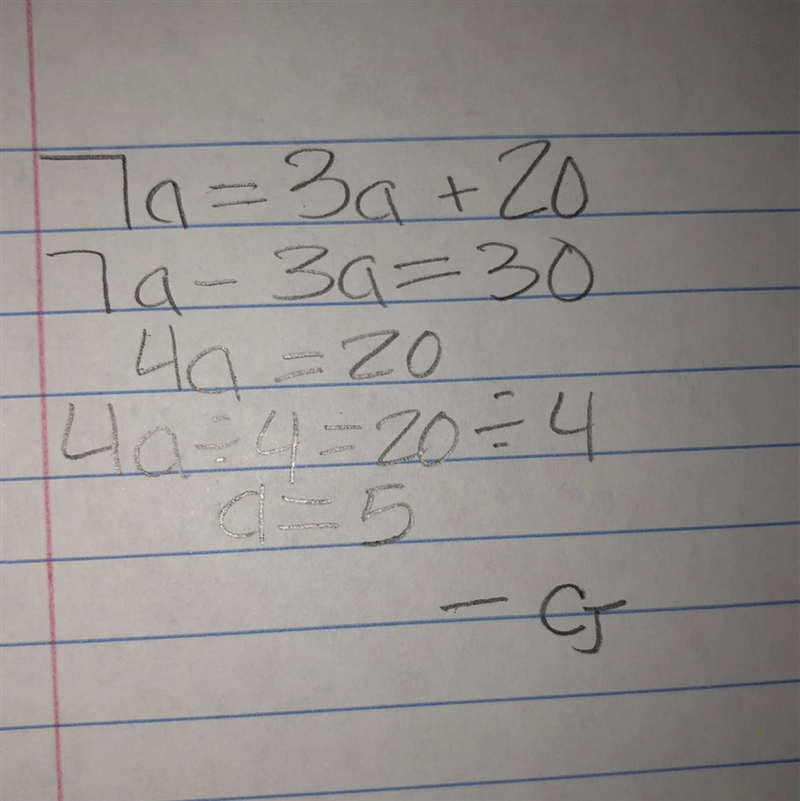 7a = 3a + 20
7a - 3a = 30
4a = 20
4a ÷ 4 = 20 ÷ 4
a = 5
- CJ